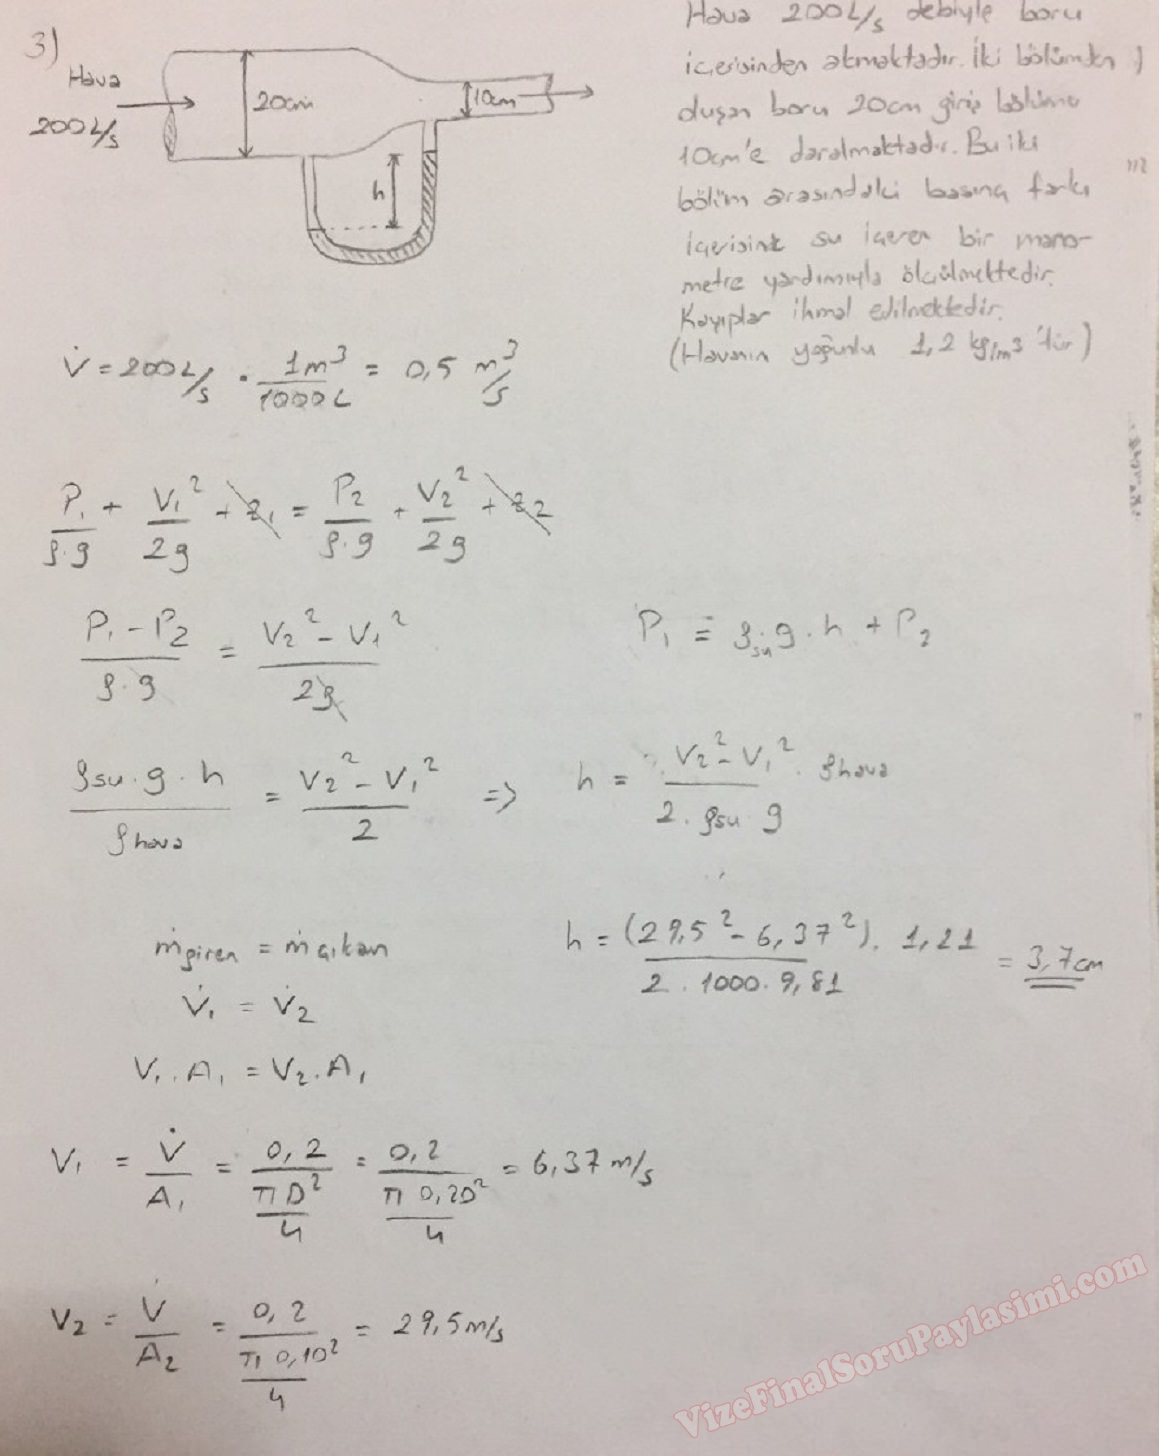 3)
Hava
200L/s
20cm
10cm
h
Hava 200L/s debiyle boru
içerisinden akmaktadır. İki bölümden
oluşan boru 20cm giriş bölümü
10cm'e daralmaktadır. Bu iki
bölüm arasındaki basınç farkı
içerisine su içeren bir mano-
metre yardımıyla ölçülmektedir.
Kayıplar ihmal edilmektedir.
(Havanın yoğunlu 1,2 kg/m³'tür)
V̇ = 200L/s · 1m³/1000L = 0,5 m³/s
P₁/ρ·g + V₁²/2g + z₁ = P₂/ρ·g + V₂²/2g + z₂
P₁ - P₂/ρ·g = V₂² - V₁²/2g
P₁ = ρsu·g·h + P₂
ρsu·g·h/ρhava = V₂² - V₁²/2 => h = V₂² - V₁²·ρhava/2·ρsu·g
ṁgiren = ṁçıkan
V̇₁ = V̇₂
V₁·A₁ = V₂·A₁
h = (29,5² - 6,37²)·1,21/2·1000·9,81 = 3,7cm
V₁ = V̇/A₁ = 0,2/πD²/4 = 0,2/π 0,20²/4 = 6,37 m/s
V₂ = V̇/A₂ = 0,2/π 0,10²/4 = 29,5 m/s
VizeFinalSoruPaylasimi.com